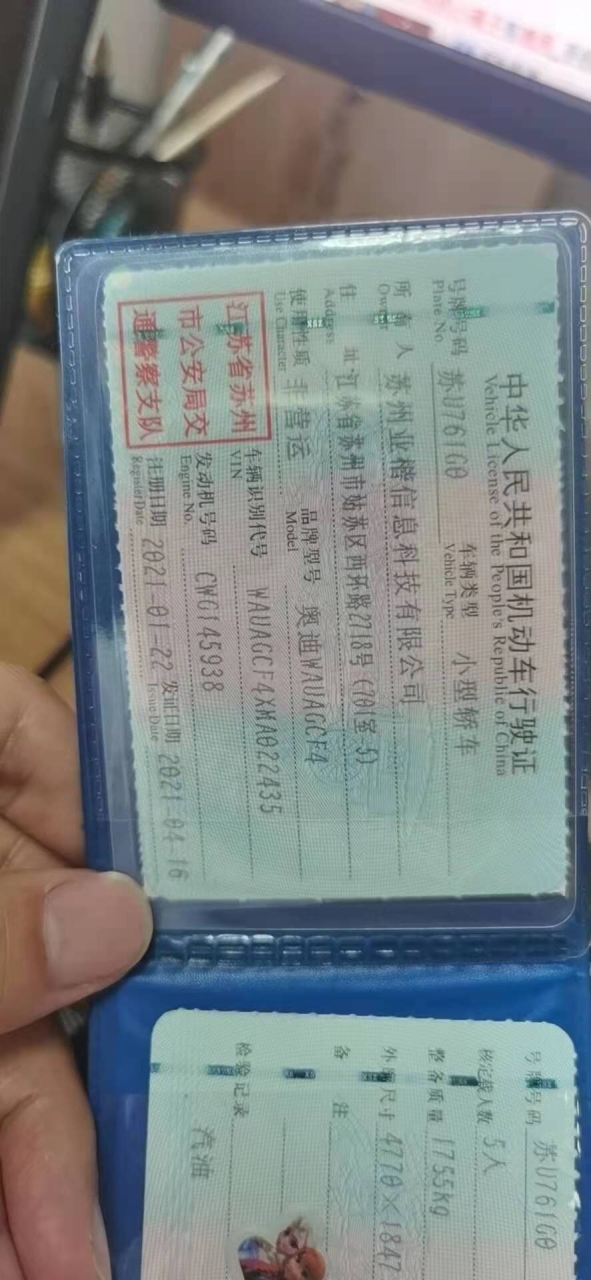 中华人民共和国机动车行驶证
Vehicle License of the People's Republic of China
号牌号码 苏U761G0 车辆类型 小型轿车
Plate No. Vehicle Type
所有人 苏州亚楷信息科技有限公司
Owner
住址 江苏省苏州市姑苏区西环路2718号(701室-5)
Address
使用性质 非营运 品牌型号 奥迪WAUAGCF4
Use Character Model
江苏省苏州
市公安局交
通警察支队
车辆识别代号 WAUAGCF4XMA022435
VIN
发动机号码 CWG145938
Engine No.
注册日期 2021-01-22 发证日期 2021-04-16
Register Date Issue Date
号牌号码 苏U761G0
核定载人数 5人
整备质量 1755kg
外廓尺寸 4770×1847
备注
检验记录
汽油